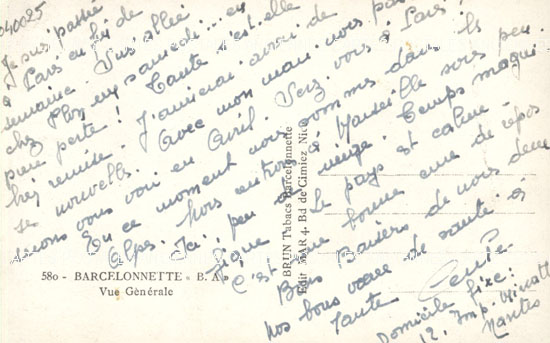 040025
Je suis passée
à Paris en fév de
semaine. Suis allée
chez en samedi... en
pure perte! Tante est-elle
très remise. J'aimerai avoir de
ses nouvelles. Avec mon mari nous
irons vous voir en Avril. Serez-vous à Paris!
En ce moment nous sommes dans les
Alpes. Ici, hors entrons à Marseille sous peu
peu de neige. Temps magni-
fique. Le pays est calme
C'est une bonne cure de repos
Bons Baisers de nous deux
nos bons vœux de santé à
Tante
Domicile fixe:
12, Imp.
Nantes
580 - BARCELONNETTE « B. A »
Vue Générale
BRUN Tabacs Barcelonnette
Edit MAR 4, Bd de Cimiez Nice